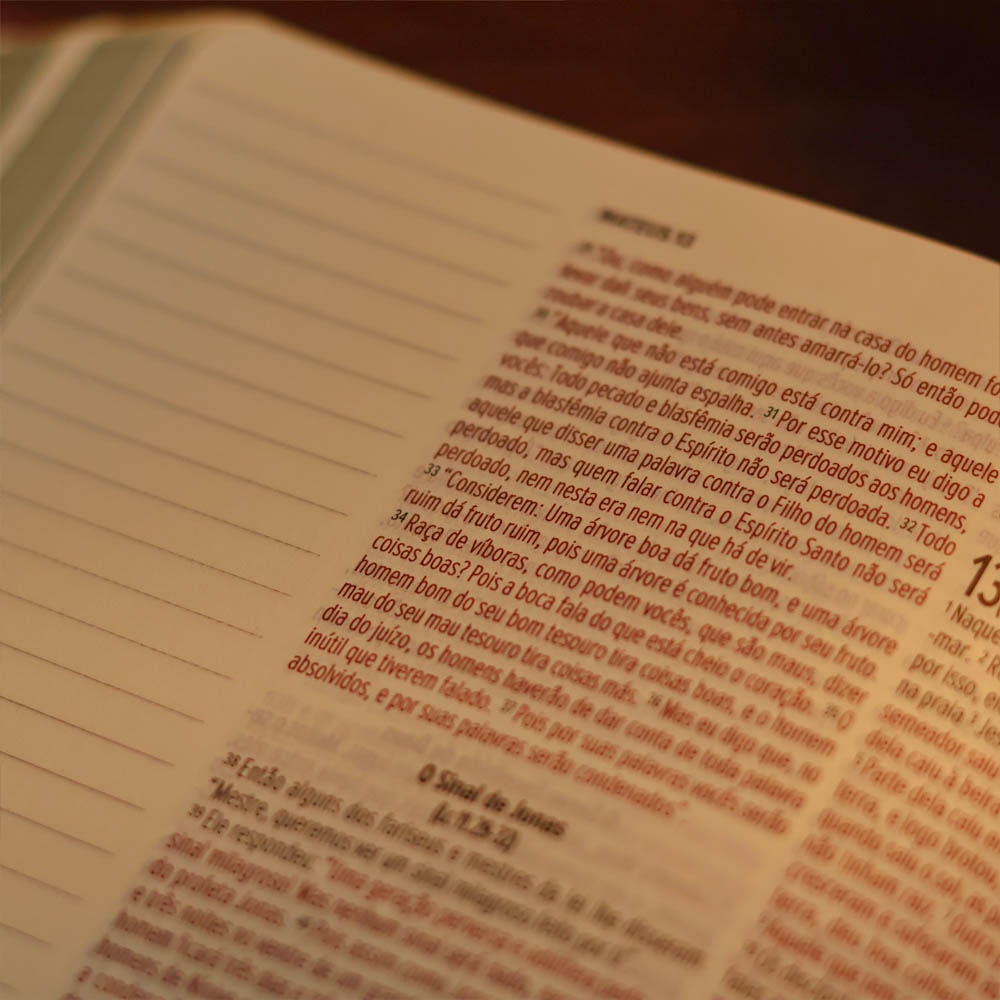 MATEUS 12
29 "Ou, como alguém pode entrar na casa do homem fo
levar dali seus bens, sem antes amarrá-lo? Só então pode
roubar a casa dele.
30 "Aquele que não está comigo está contra mim; e aquele
que comigo não ajunta espalha. 31 Por esse motivo eu digo a
vocês: Todo pecado e blasfêmia serão perdoados aos homens,
mas a blasfêmia contra o Espírito não será perdoada. 32 Todo
aquele que disser uma palavra contra o Filho do homem será
perdoado, mas quem falar contra o Espírito Santo não será
perdoado, nem nesta era nem na que há de vir.
33 "Considerem: Uma árvore boa dá fruto bom, e uma árvore
ruim dá fruto ruim, pois uma árvore é conhecida por seu fruto
34 Raça de víboras, como podem vocês, que são maus, dizer
coisas boas? Pois a boca fala do que está cheio o coração. 35 O
homem bom do seu bom tesouro tira coisas boas, e o homem
mau do seu mau tesouro tira coisas más. 36 Mas eu digo que, no
dia do juízo, os homens haverão de dar conta de toda palavra
inútil que tiverem falado. 37 Pois por suas palavras vocês serão
absolvidos, e por suas palavras serão condenados".
O Sinal de Jonas
38 Então alguns dos fariseus e mestres da lei lhe disseram
"Mestre, queremos ver um sinal milagroso feito por ti".
39 Ele respondeu: "Uma geração perversa e
sinal milagroso! Mas nenhum sinal
do profeta Jonas. 40 Pois assim como
e três noites no ventre de um
homem ficará
13
1 Naque
-mar. 2 R
por isso, e
na praia 3 Je
semeador saiu
dela caiu à beira
5 Parte dela caiu
terra, e logo brotou,
Quando saiu o sol, as
não tinham raiz. 7 Outra
cresceram e sufocaram
terra, deu boa colhe